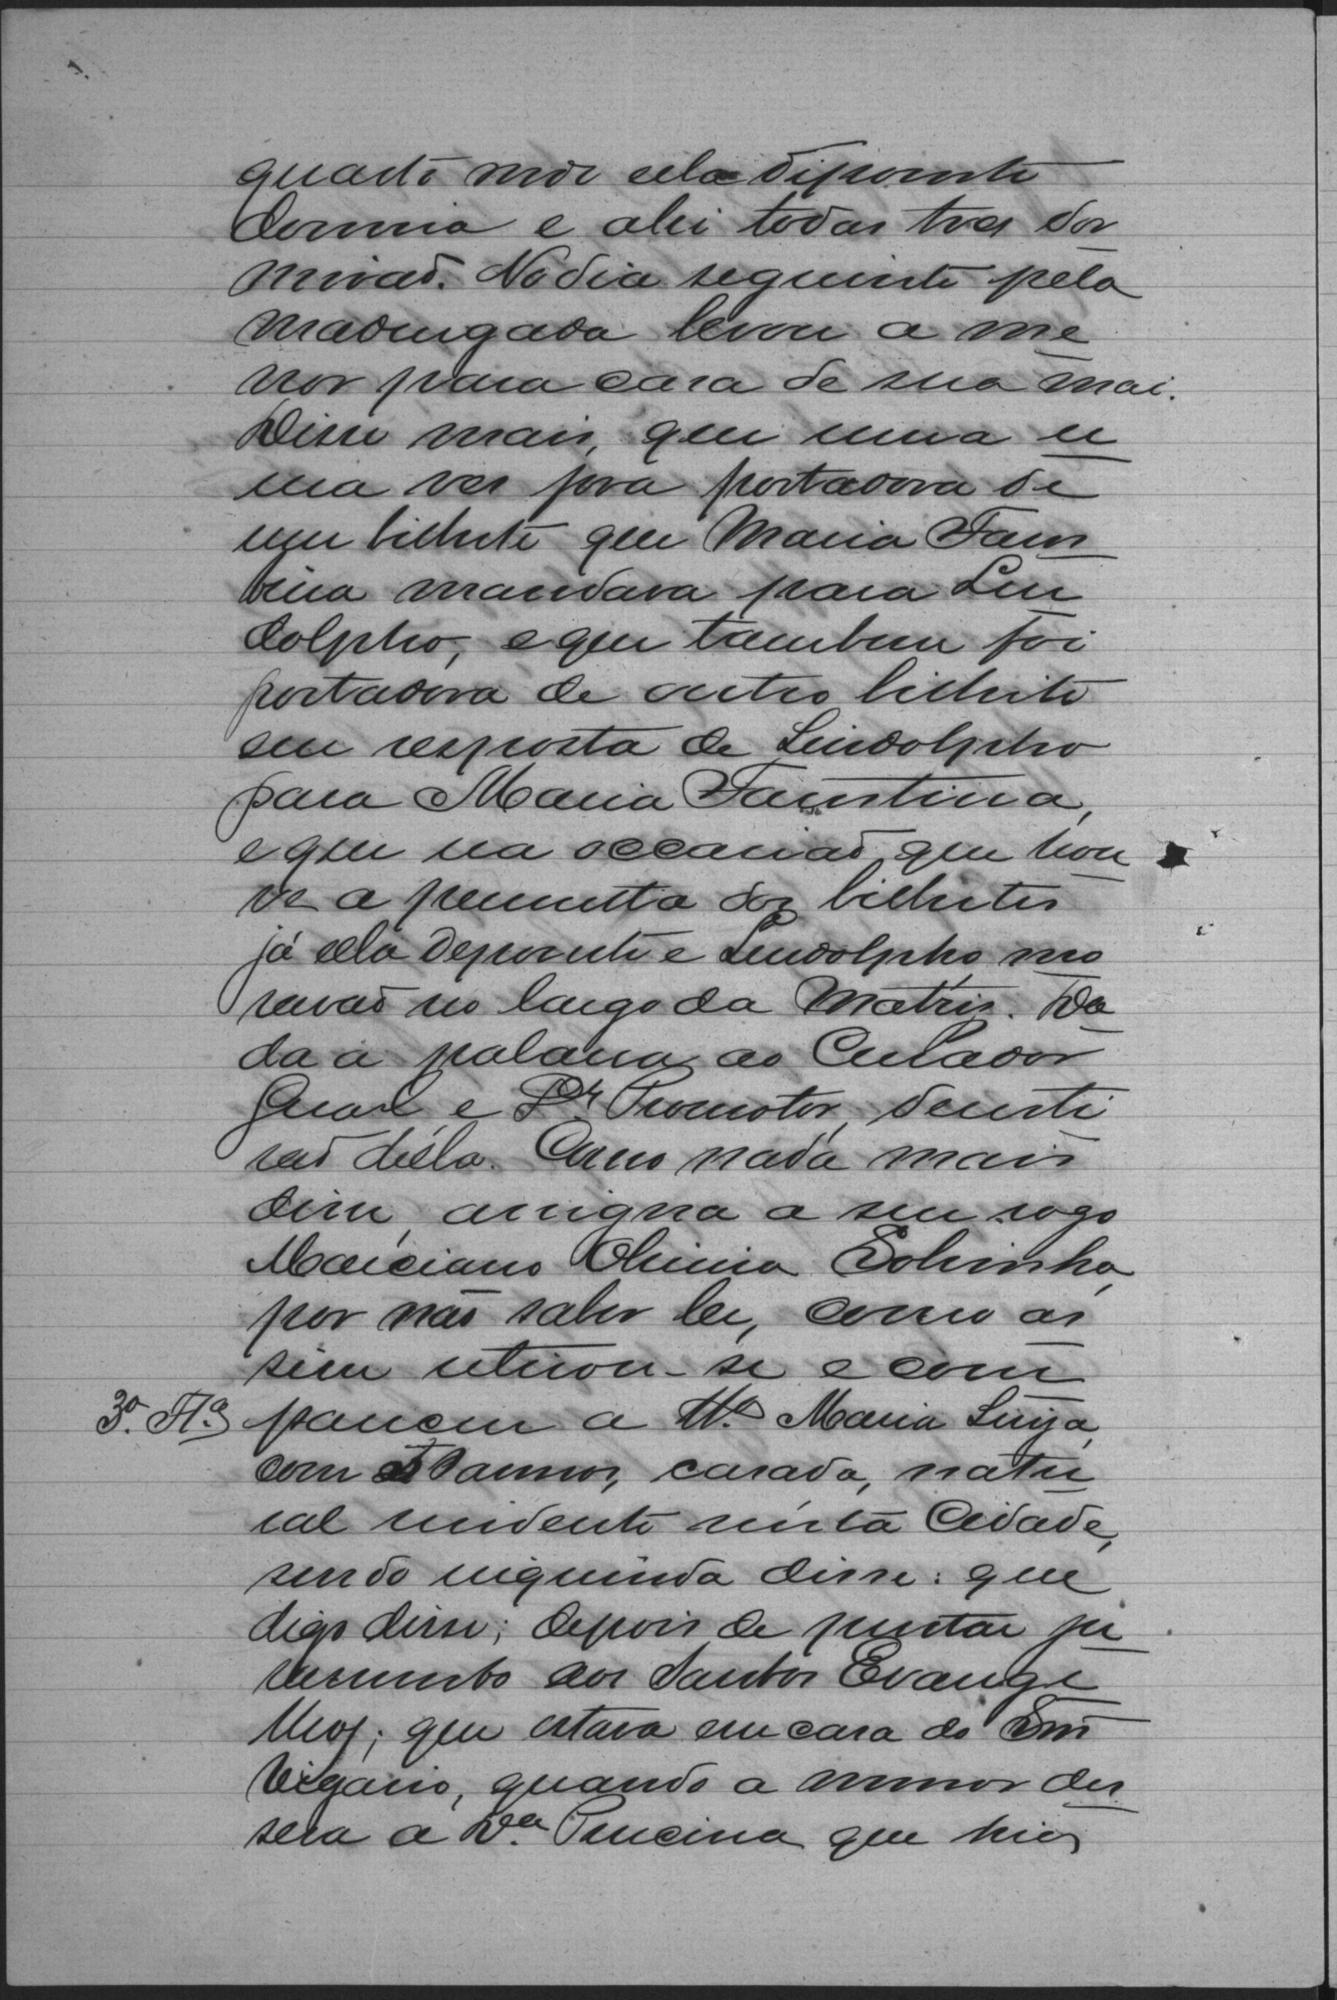 quarto onde ella depoente
dormia e ahi todas tres dor
mirão. No dia seguinte pela
madrugada levou a me
nor para casa de sua mai.
Disse mais, que uma u
nica vez fora portadora de
um bilhete que Maria Faus
tina mandava para Lin
dolpho, e que tambem foi
portadora de outro bilhete
em resposta de Lindolpho
para Maria Faustina,
e que na occasião que hou
ve a permutta dos bilhetes
já ella depoente e Lindolpho mo
ravão no largo da Matriz. Da
da a palavra ao Curador
Geral e Dr. Promotor, desisti
rão della. Como nada mais
disse, assigna a seu rogo
Marciano Sobrinho,
por não saber ler, como as
sim retirou-se e com
3ª. Tª pareceu a Tª. Maria Luiza,
com annos, casada, natu
ral residente nésta Cidade,
sendo inquirida disse: que
digo disse; depois de prestar ju
ramento aos Santos Evange
lhos; que estava em casa do Snr
Vigario, quando a menor dis
sera a Dª. que hia